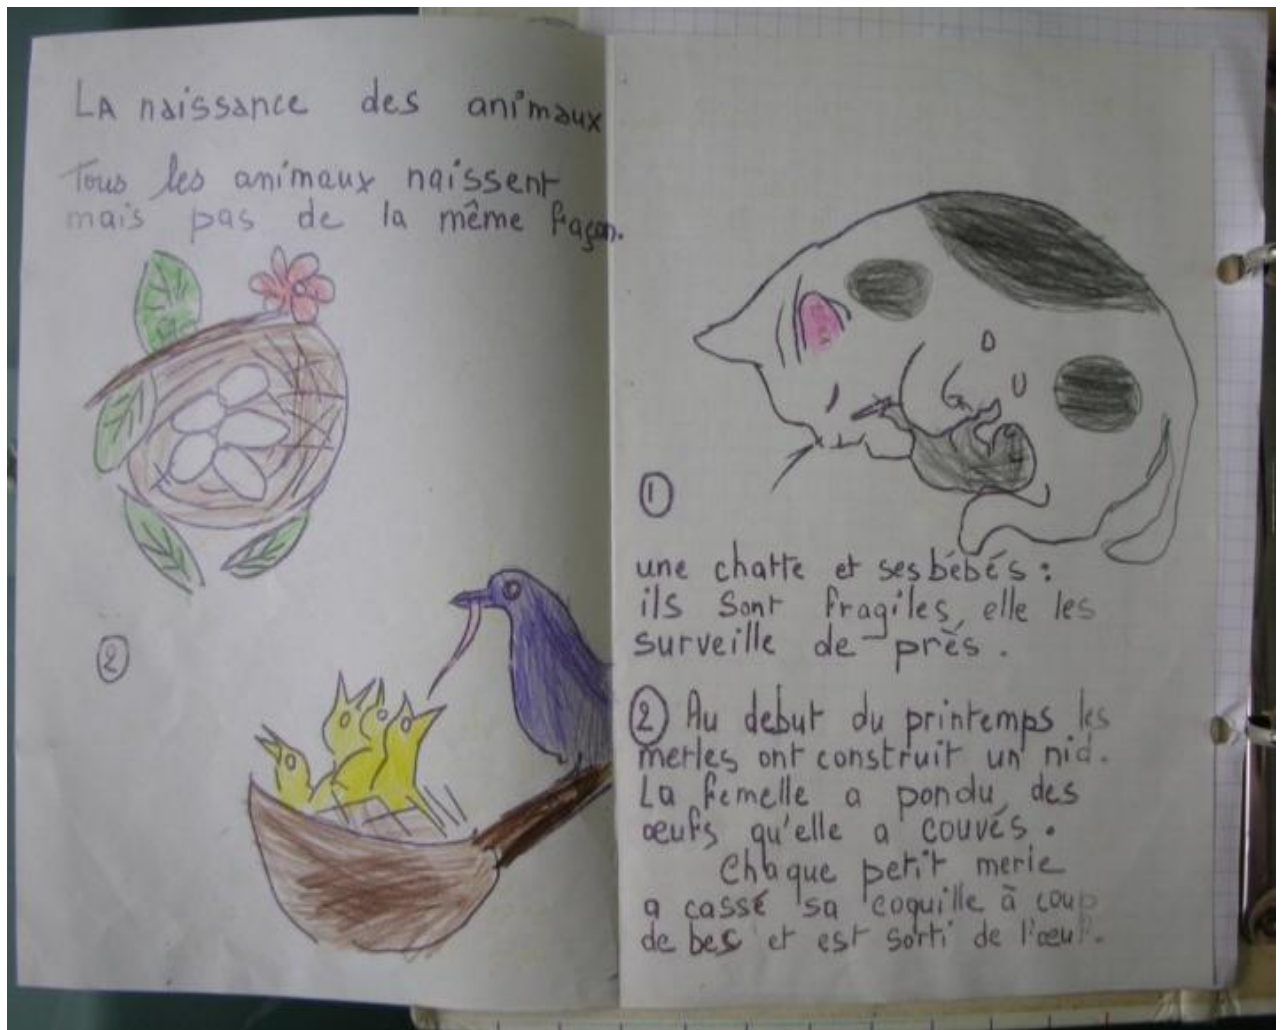 LA naissance des animaux
Tous les animaux naissent
mais pas de la même façon.
2
1
une chatte et ses bébés :
ils sont fragiles, elle les
surveille de près .
2 Au debut du printemps les
merles ont construit un nid.
La femelle a pondu des
œufs qu'elle a couvés .
Chaque petit merle
a cassé sa coquille à coup
de bec et est sorti de l'œuf.